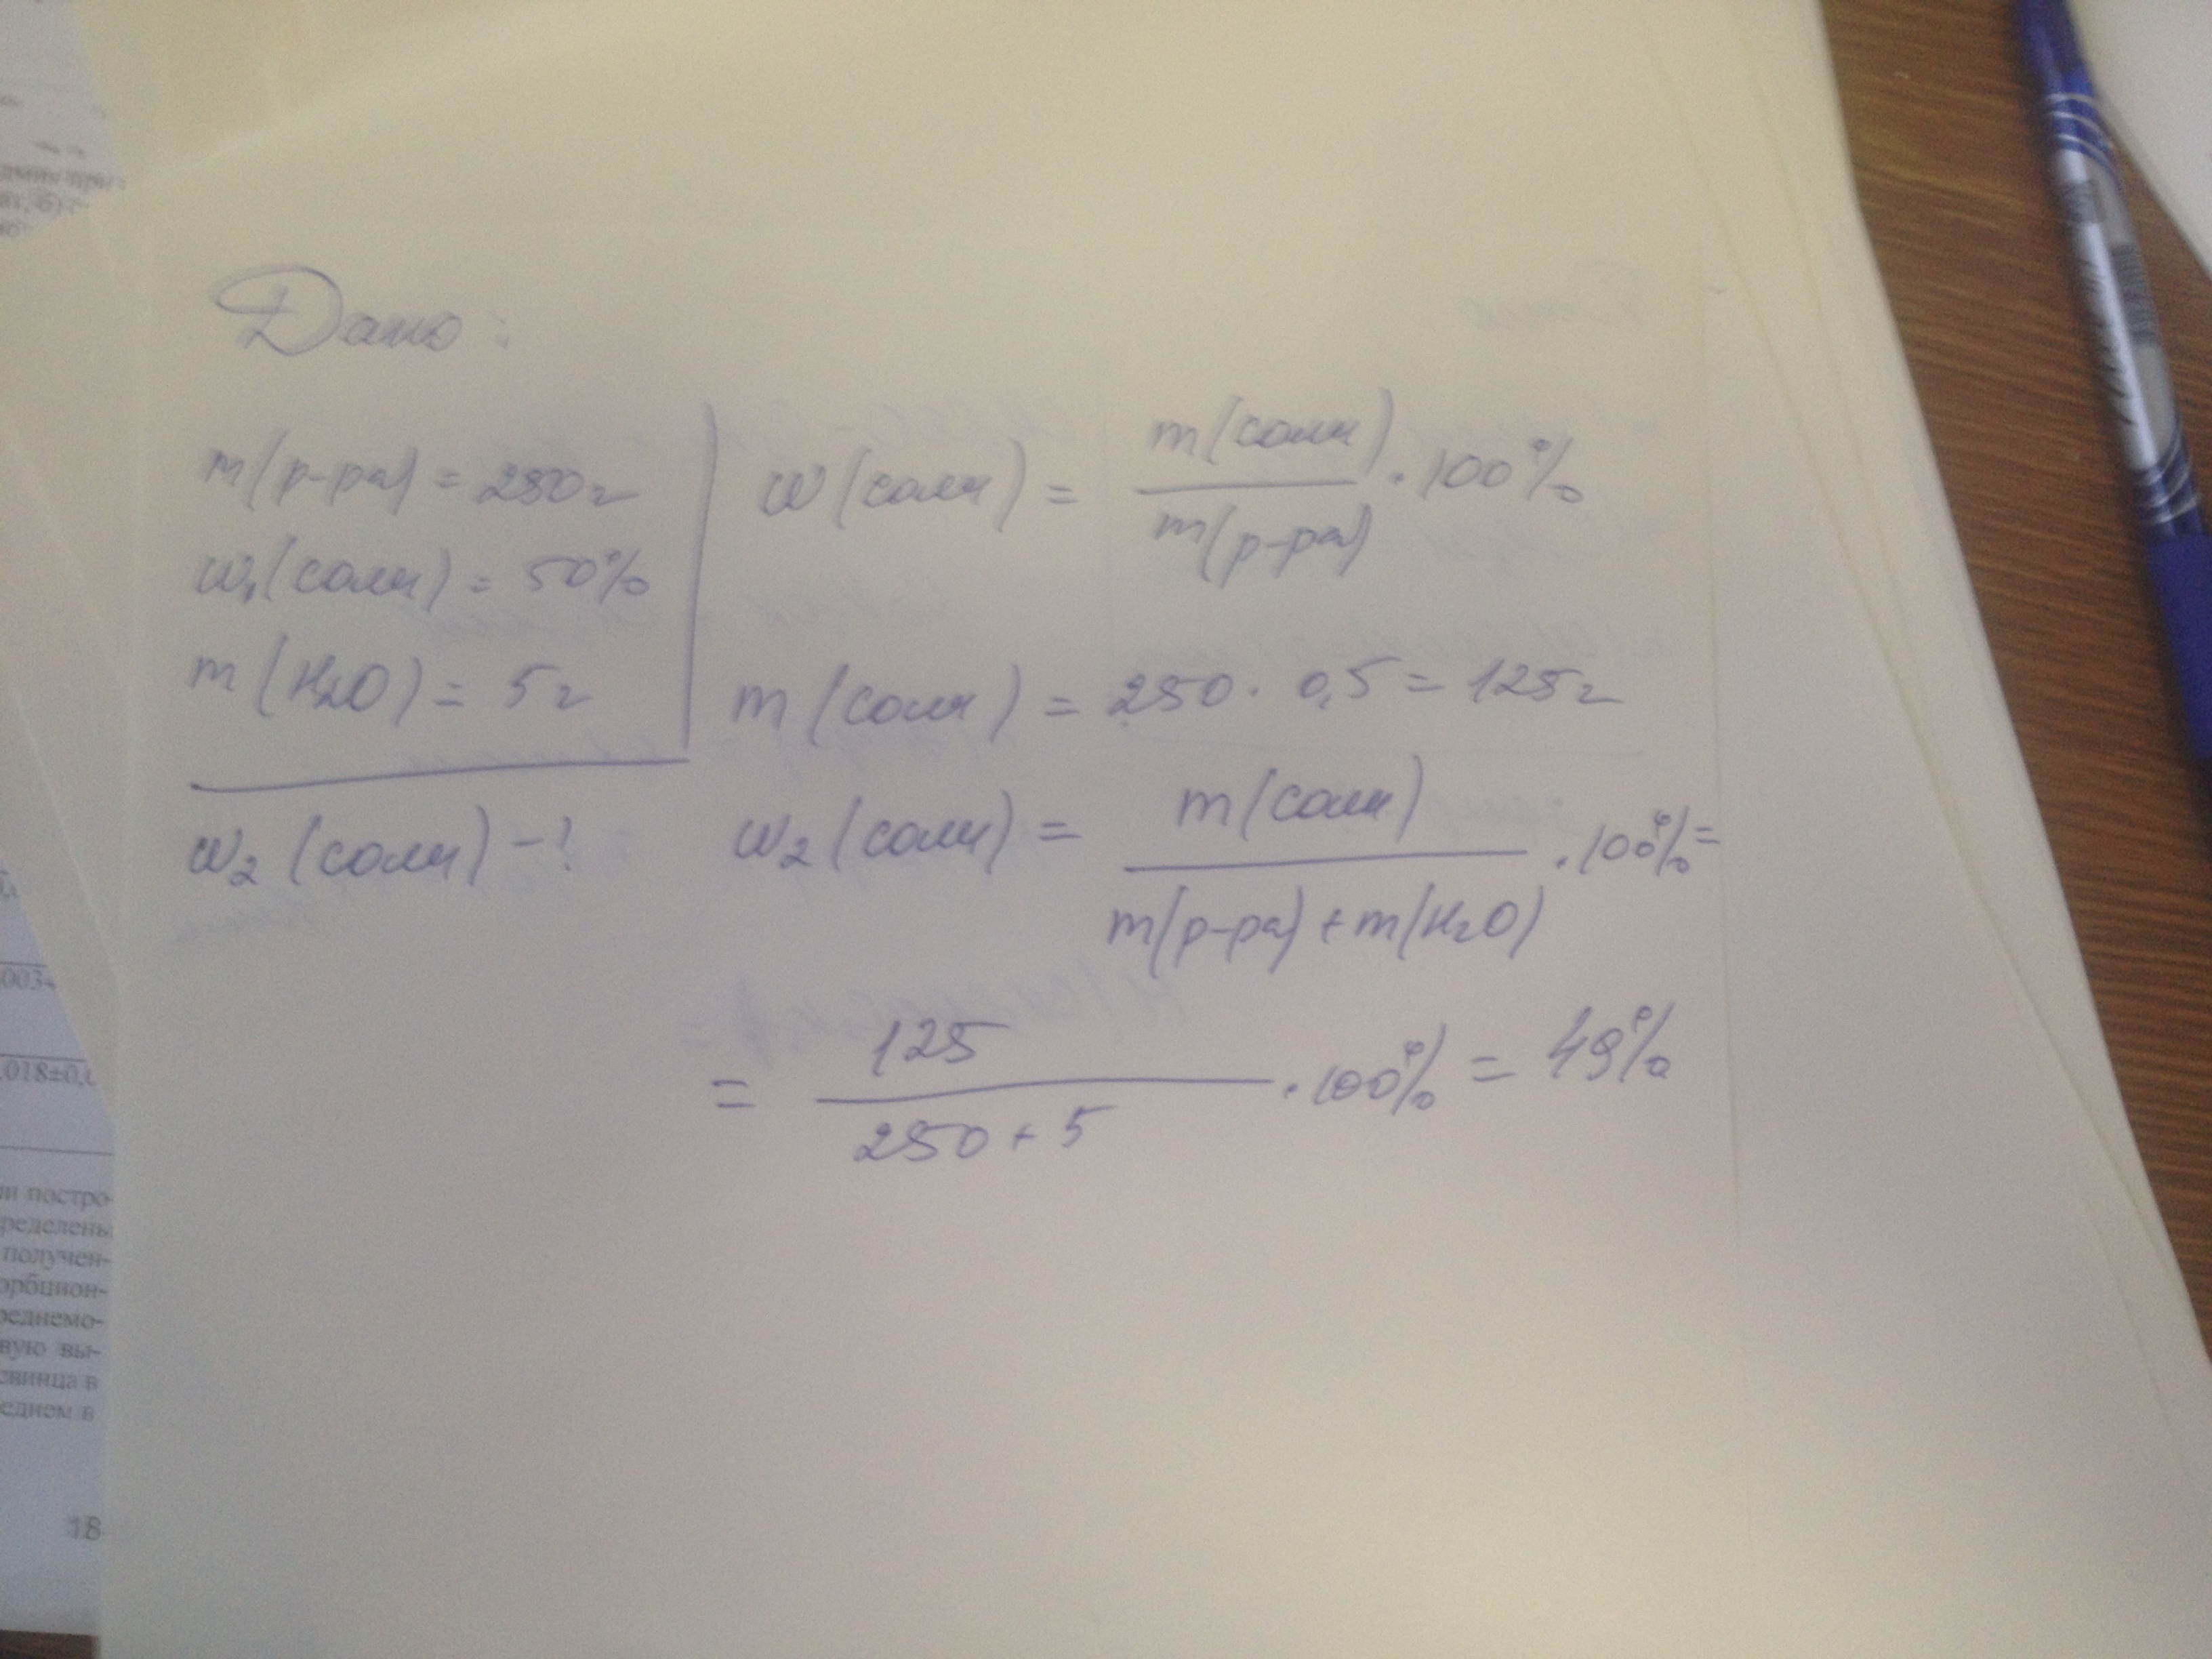 Дано:
m(р-ра) = 250г
w₁(соли) = 50%
m(H₂O) = 5г
w₂(соли) -?
w(соли) = m(соли)/m(р-ра) · 100%
m(соли) = 250 · 0,5 = 125г
w₂(соли) = m(соли)/m(р-ра) + m(H₂O) · 100% =
= 125/250 + 5 · 100% = 49%
003
018±0,
и постро-
ределены
получен-
орбцион-
реднемо-
вую вы-
свинца в
еднем в
18